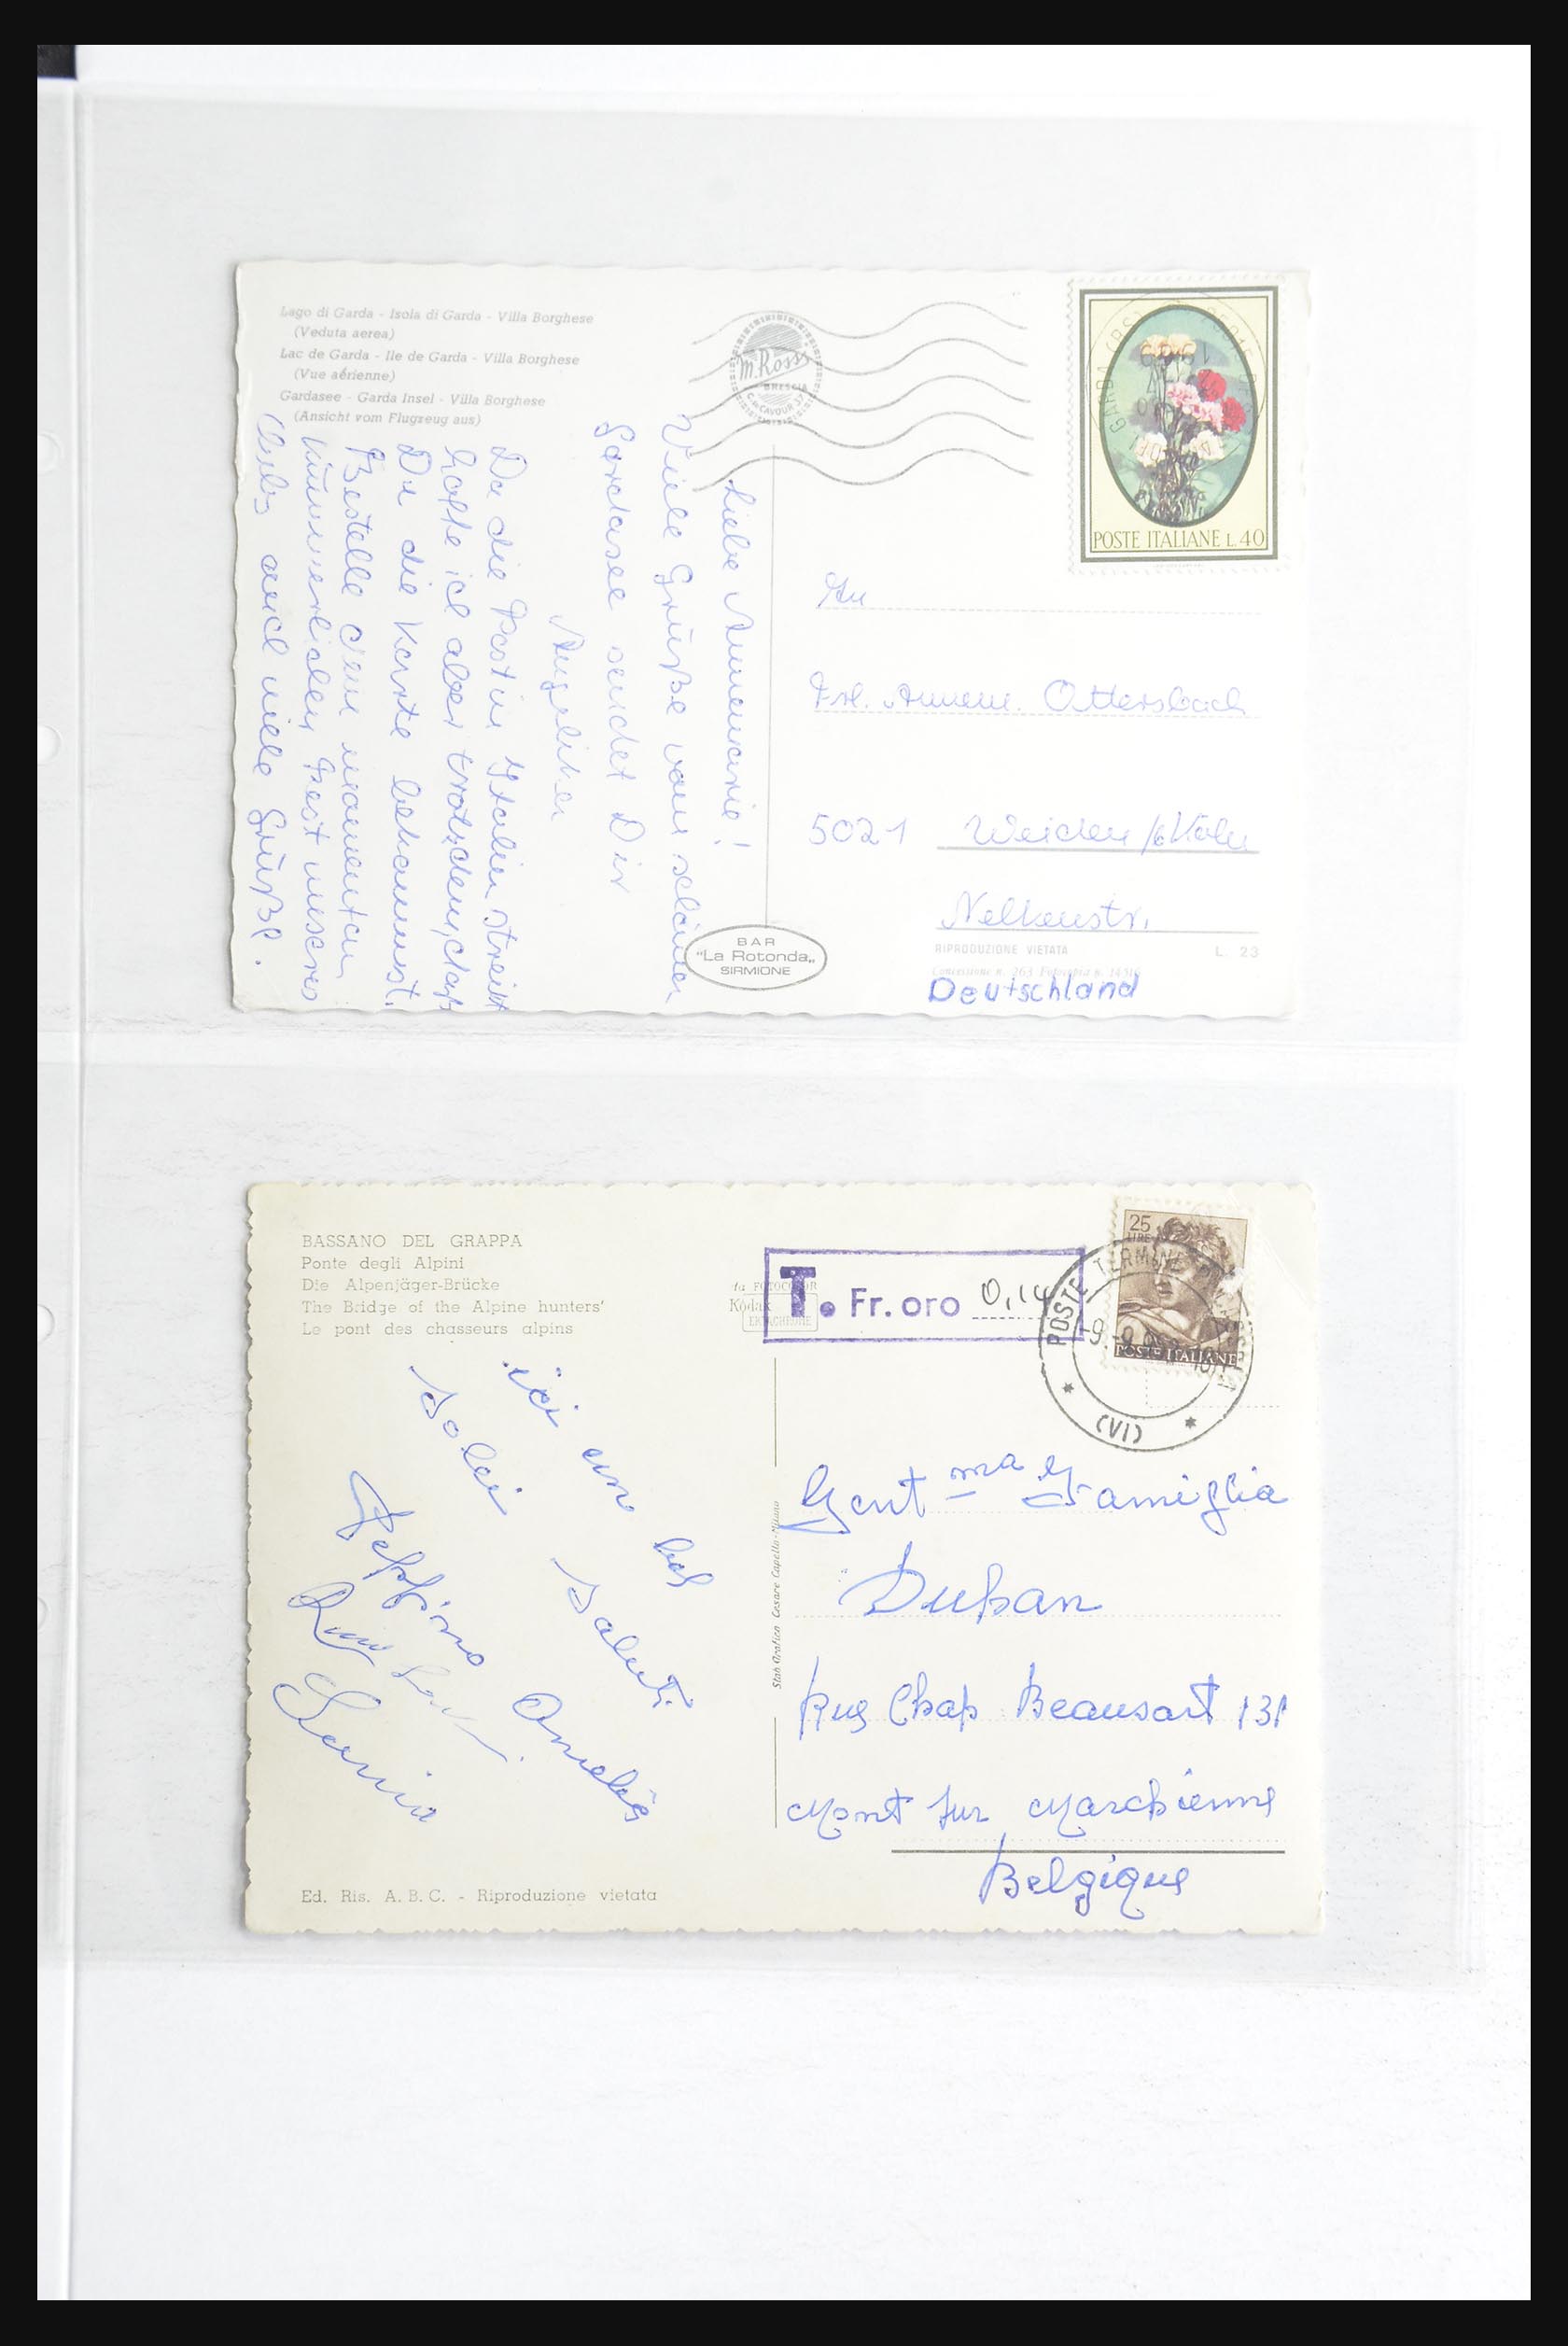 Lago di Garda - Isola di Garda - Villa Borghese
(Veduta aerea)
Lac de Garda - Ile de Garda - Villa Borghese
(Vue aérienne)
Gardasee - Garda Insel - Villa Borghese
(Ansicht vom Flugzeug aus)
M. Rossi
BRESCIA
POSTE ITALIANE L. 40
Liebe Annemarie!
Viele Grüße vom schönen
Gardasee sendet Dir
Da die Post in Italien streikt
hoffe ich aber trotzdem, daß
Du die Karte bekommst.
Bestelle dem momentan
kümmerlichen Rest unseres
Clubs auch viele Grüße.
An
Frl. Annem. Ottersbach
5021 Weiden /b Köln
Nelkenstr.
RIPRODUZIONE VIETATA L. 23
Deutschland
BAR
"La Rotonda"
SIRMIONE
BASSANO DEL GRAPPA
Ponte degli Alpini
Die Alpenjäger-Brücke
The Bridge of the Alpine hunters'
Le pont des chasseurs alpins
fa FOTOCOLOR
Kodak
EKTACHROME
T. Fr. oro 0,14
25
LIRE
POSTE ITALIANE
POSTE TERME
(VI)
ici un bel
soleil
Saluti
Beppino
Amelia
Gent ma Famiglia
Duhan
Rue Chap Beausart 131
Mont sur Marchienne
Belgique
Stab Grafico Cesare Capello - Milano
Ed. Ris. A. B. C. - Riproduzione vietata